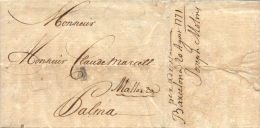 Monsieur
Monsieur Claude Marcott
Mallorca
Palma
Barcelona 20 Agost 1771
Joseph